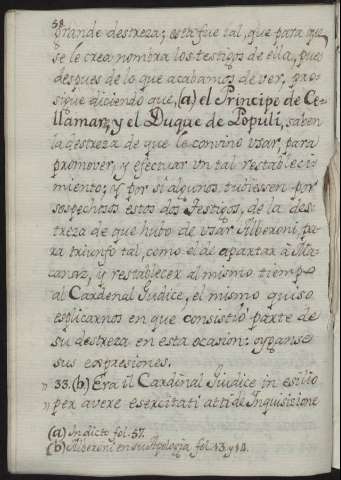 58.
grande destreza; esta fue tal, que para que
se le crea nombra los testigos de ella, pues
despues de lo que acabamos de ver, pro-
sigue diciendo que, (a) el Principe de Ce-
llamar, y el Duque de Populi, saben
la destreza de que le convino usar, para
promover, y efectuar un tal restableci-
miento; y por si algunos, tubiessen por
sospechosos estos dos Testigos, de la des-
treza de que hubo de usar Alberoni, pa-
ra triunfo tal, como el de apartar à Ma-
canaz, y restablecer al mismo tiempo
al Cardenal Judice, el mismo quiso
esplicarnos en que consistiò parte de
su destreza en esta ocasion: oyganse
sus expresiones.
" 33. (b) Era il Cardinal Giudice in esilio
" per avere esercitati atti de Inquisizione
(a) In dicto fol. 57.
(b) Alberoni en su Apologia fol. 13. y 14.